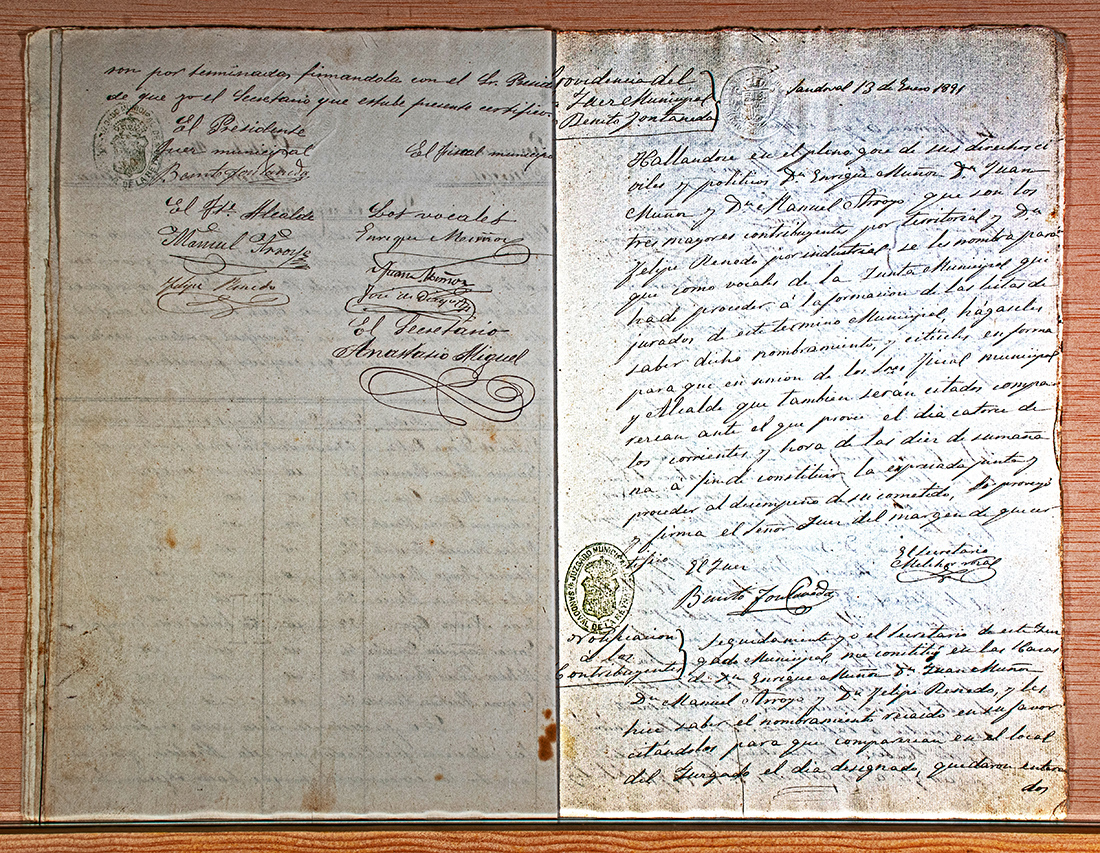 son por terminadas firmandola con el Sr. Presid
de que yo el Secretario que estube presente certifico.
El Presidente
Juez municipal
Benito Fontaneda
El fiscal municipa
El Alcalde
Manuel Arroyo
Felipe Renedo
Los vocales
Enrique Muñoz
Juan Muñoz
José de
El Secretario
Anastasio Miguel
ovidencia del
Juez Municipal
Benito Fontaneda
Sandoval 13 de Enero 1891
Hallandose en el pleno goce de sus derechos ci
viles y politicos Dn Enrique Muñoz Dn Juan
Muñoz y Dn Manuel Arroyo que son los
tres mayores contribuyentes por territorial y Dn
Felipe Renedo por industrial se les nombra para
que como vocales de la Junta Municipal que
ha de proceder á la formacion de las listas de
jurados de este termino Municipal, hágaseles
saber dicho nombramiento, y citeles en forma
para que en union de los Sres fiscal municipal
y Alcalde que tambien serán citados compa
rezcan ante el que provee el dia catorce de
los corrientes y hora de las diez de su maña
na á fin de constituir la espresada junta y
proceder al desempeño de su cometido, lo proveyó
y firma el señor Juez del margen de que cer
tifico
El Juez
Benito Fontaneda
El Secretario
JUZGADO MUNICIPAL
SANDOVAL DE LA REINA
Notificacion
a los
Contribuyentes
Seguidamente yo el Secretario de este Juz
gado Municipal me constituí en las Casas
de Dn Enrique Muñoz Dn Juan Muñoz
Dn Manuel Arroyo y Dn Felipe Renedo, y les
hice saber el nombramiento recaido en su favor
citándolos para que comparezcan en el local
del Juzgado el dia designado, quedaron entera
dos